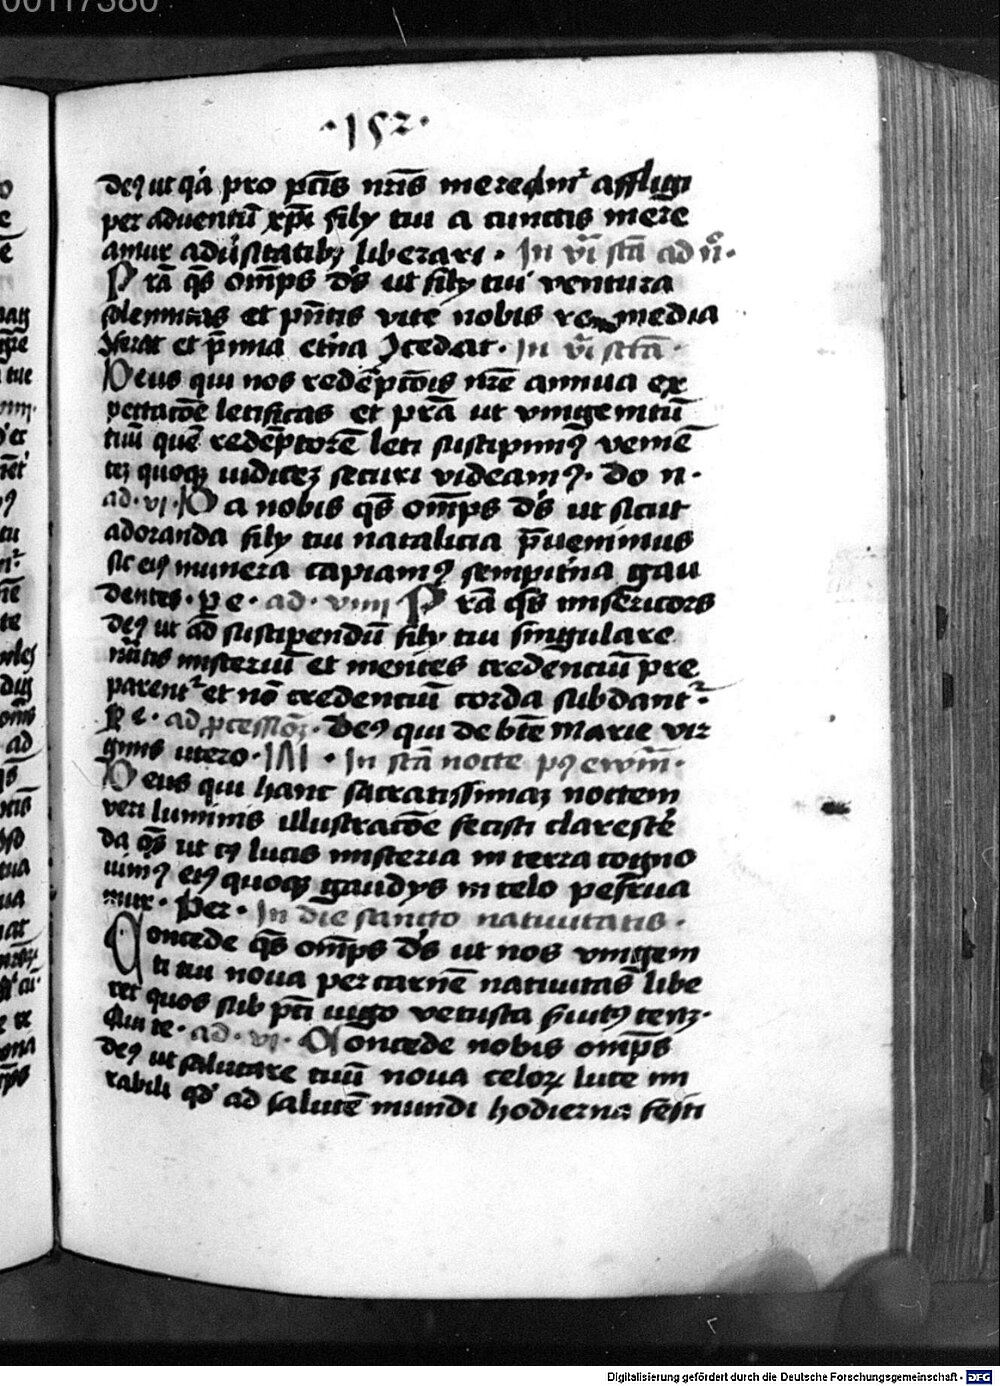 ·152·
deꝰ ut qͥa pro pctīs nrīs meremurᷣ affligi
per aduentū xp̄i filij tui a cunctis mere
amur aduͥsitatibꝫ liberari · In vīͥ sctā ad
Prā qs̄ om̄ps ds̄ ut filij tui ventura
solemnitas et pn̄tis vite nobis remedia
ꝯferat et p̄mia et̄na ꝯcedat · In vīͥ sctā ·
Deus qui nos redēptōis nr̄e annua ex
pectatōe letificas et prā ut vnigenitū
tuū quē redēptorē leti suscipimꝰ veniē
teꝫ quoqꝫ iudiceꝫ securi videamꝰ · do n ·
ad · vi · Da nobis qs̄ om̄ps ds̄ ut sicut
adoranda filij tui natalicia p̄uenimus
sic eiꝰ munera capiamꝰ sempit̄na gau
dentes · p e · ad · viiii Prā qs̄ misericors
deꝰ ut ad suscipendū filij tui singulare
misteriū et mentes credenciū pre
parentᷣ et nō credenciū corda subdantᷣ ·
P e · ad ꝓcessiōꝫ · Deꝰ qui de btē marie vir
ginis utero · In sctā nocte
Deus qui hanc sacratissimaꝫ noctem
veri luminis illustratōe fecisti clarescē
da qs̄ ut cꝰ lucis misteria in terra cogno
uimꝰ eiꝰ quoqꝫ gaudijs in celo perfrua
mur · Per · In die sancto natiuitatis ·
Concede qs̄ om̄ps ds̄ ut nos vnigeni
ti tui noua per carnē natiuitas libe
ret quos sub pcti iugo vetusta s̄uitꝰ tenꝫ ·
Qui te · ad · vi · Concede nobis om̄ps
deꝰ ut salutare tuū noua celoꝝ luce mi
rabili qd̄ ad salutē mundi hodierna festi
Digitalisierung gefördert durch die Deutsche Forschungsgemeinschaft - DFG